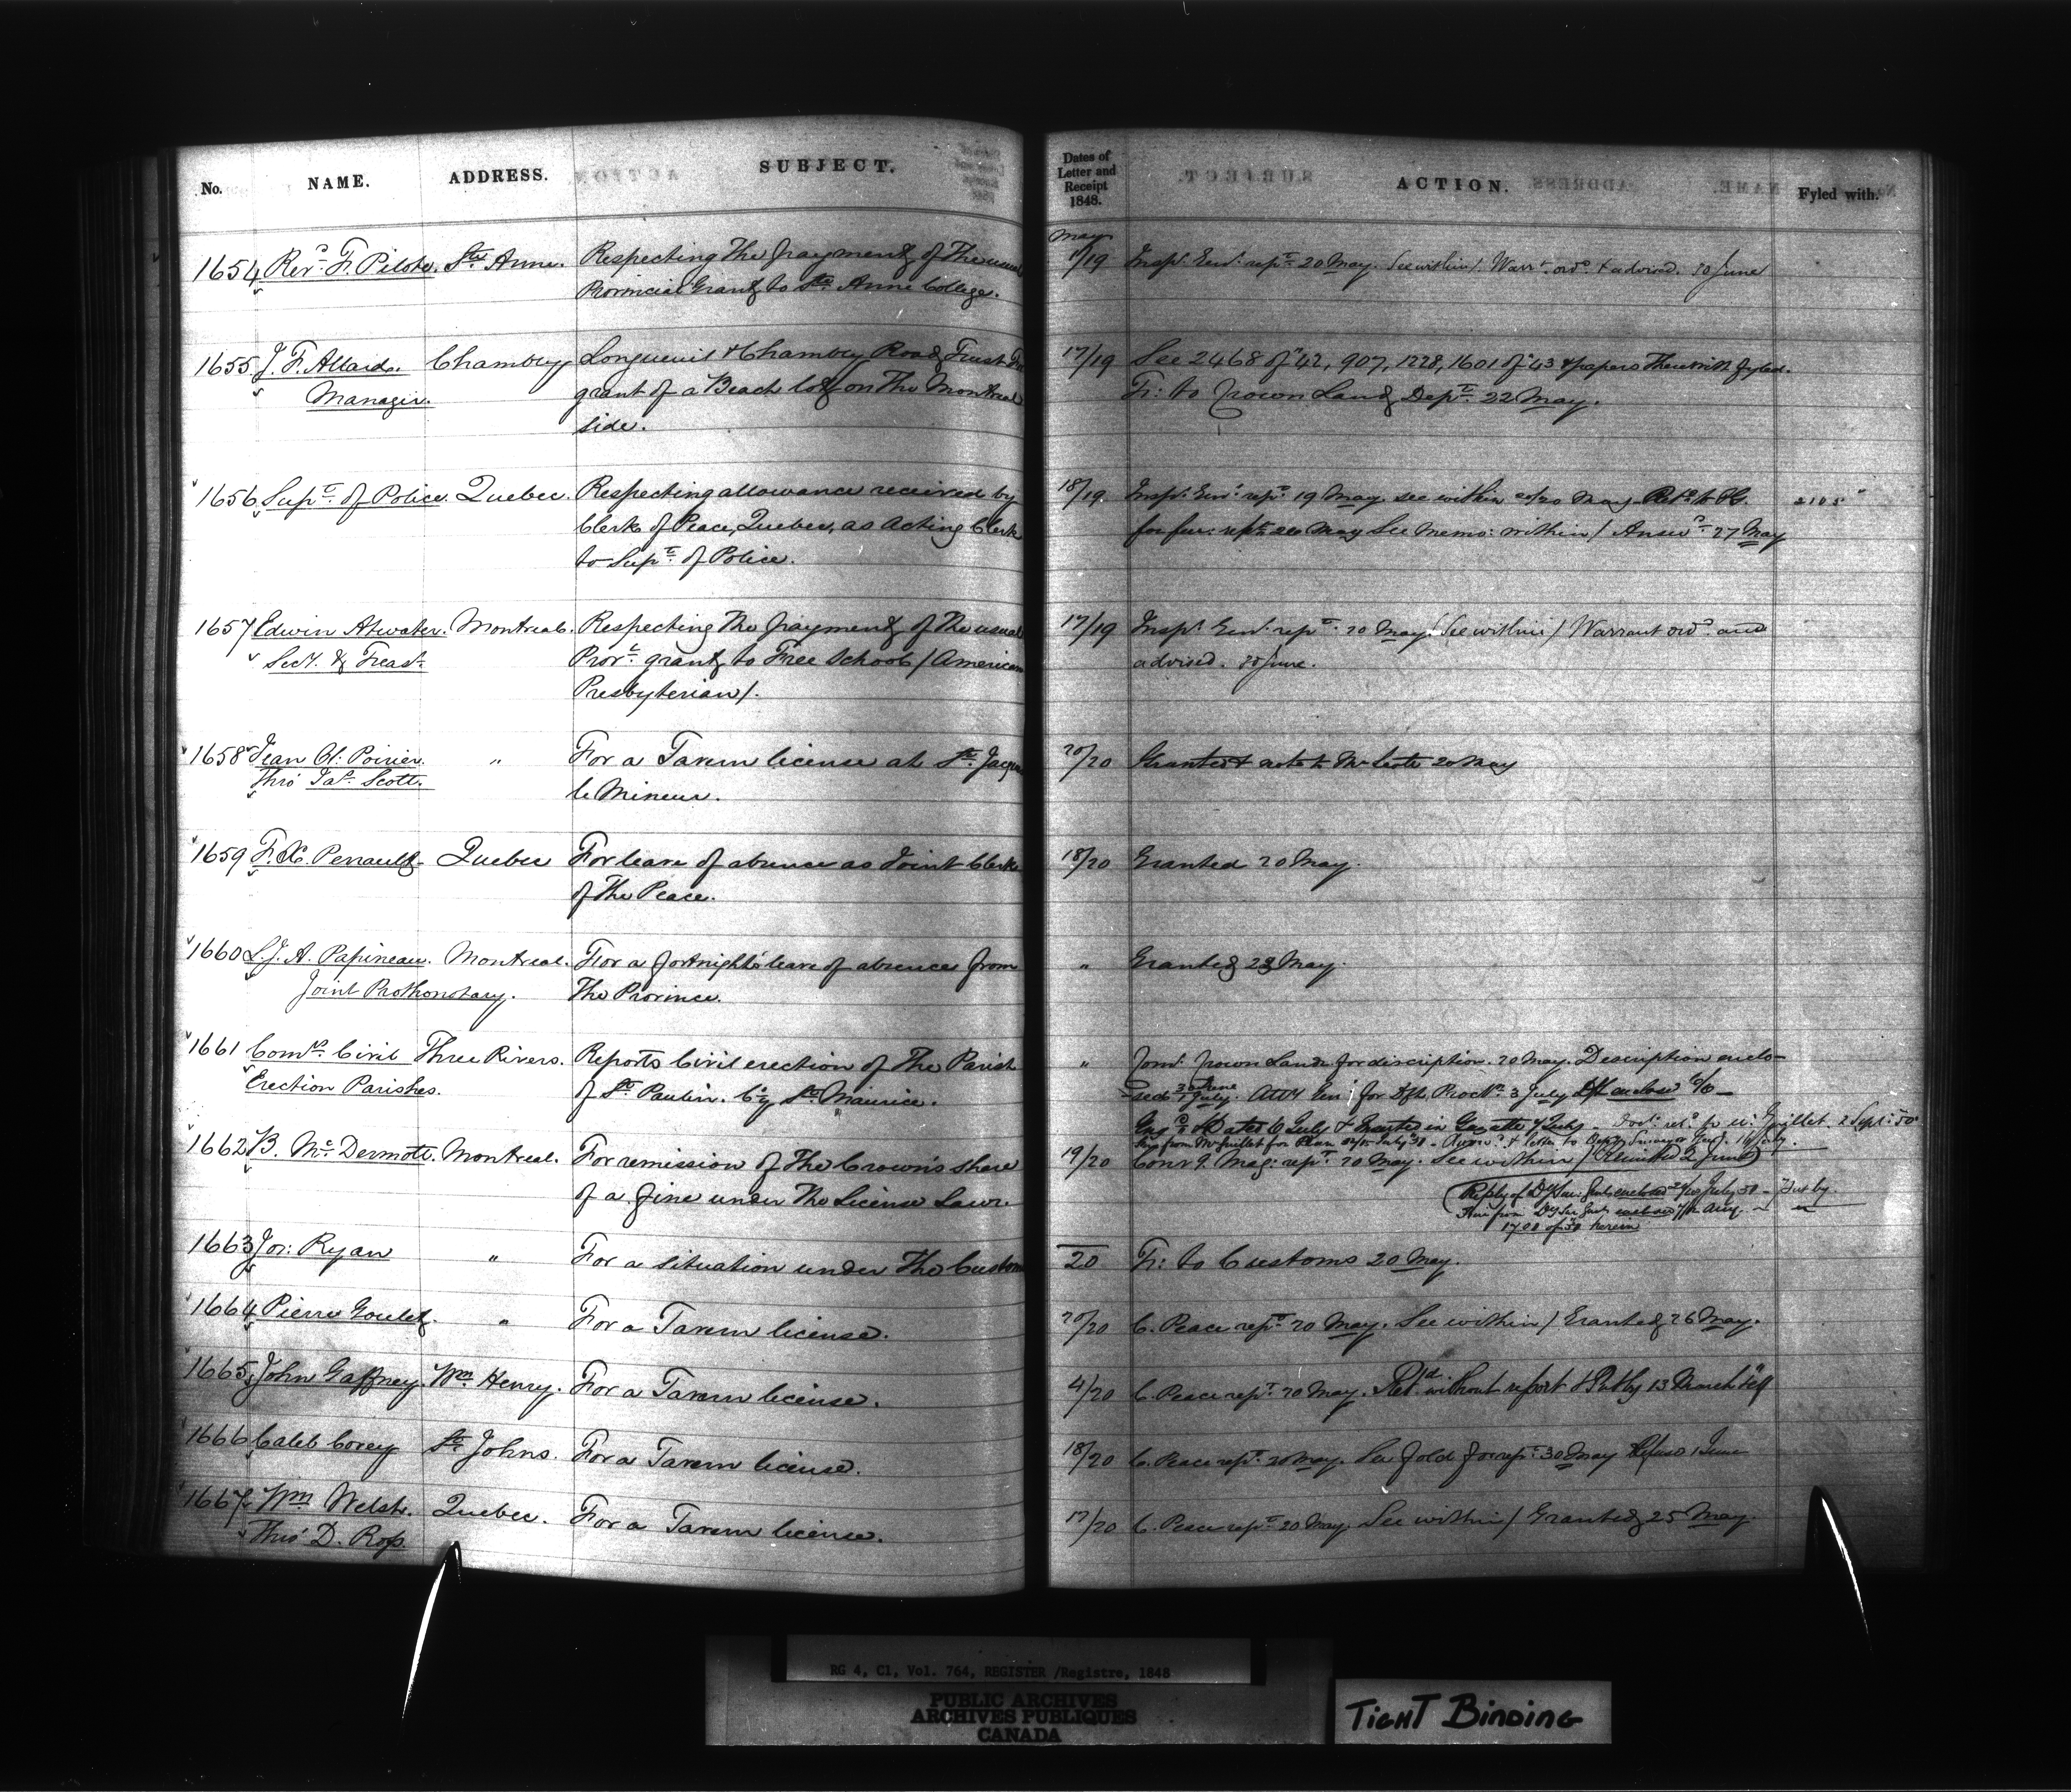 No. NAME. ADDRESS. SUBJECT. Dates of Letter and Receipt 1848. ACTION. Fyled with.
May
1654 Revd. F. Pilote. Ste. Anne. Respecting the payment of the usual 17/19 Inspr. Genl. rept. 20 May. See within/. Warrt. ordd. & advised. 30 June
Provincial Grant to Ste. Anne College.
1655 J. F. Allard. Chambly Longueuil & Chambly Road Trust For 17/19 See 2468 of "42, 907, 1228, 1601 of "43 & papers therewith fyled.
Manager. grant of a Beach lot on the Montreal Tr: to Crown Land Dept. 22 May.
side.
1656 Supt. of Police. Quebec. Respecting allowance received by 18/19. Inspr. Genl. rept. 19 May. see within 20/20 May. 2105
Clerk of Peace, Quebec, as Acting Clerk for fur: rept. May See Memo: within/ Answd. 27 May
to Supt. of Police.
1657 Edwin Atwater. Montreal. Respecting the payment of the usual 17/19 Inspr. Genl. rept. 20 May. See within/ Warrant ordd. and
Secy. & Treasr. Provl. grant to Free School / American advised. 30 June.
Presbyterian/.
1658 Jean Bt: Poirier. " For a Tavern license at St. Jacques 20/20 Granted & note to Mr Scott 20 May
Thro' Jas. Scott. le Mineur.
1659 F. X. Perrault Quebec For leave of absence as Joint Clerk 18/20 Granted 20 May.
of the Peace.
1660 L. J. A. Papineau. Montreal. For a fortnight's leave of absence from " Granted 22 May.
Joint Prothonotary. the Province.
1661 Comrs. Civil Three Rivers. Reports Civil erection of the Parish " Comr. Crown Lands for discription. 20 May. Description enclo-
Erection Parishes. of St. Paulin. Cy. St. Maurice. sed 30 June 1 July. Atty Genl. for Dft. Procln. 3 July Dft enclosed 6/6
dated 6 July & inserted in Gazette 7 July 2 Sept: 50
from Mr Guillet for Plan July 50
1662 B. McDermott. Montreal. For remission of the Crown's share 19/20 Conv g. Mag: rept. 20 May. See within / Remitted 2 June
of a fine under the License Law. Reply of July 50 - Put by.
1700 of 50 herein
1663 Jos: Ryan " For a situation under the Customs 20 Tr: to Customs 20 May.
1664 Pierre Goulet. " For a Tavern license. 20/20 C. Peace rept. 20 May. See within / Granted 26 May.
1665 John Gaffney. Wm. Henry. For a Tavern license. 4/20 C. Peace rept. 20 May. Retd. without report & Put by 13 March
1666 Caleb Corey St. Johns. For a Tavern license. 18/20 C. Peace rept. 20 May. See fold for rept. 30 May Refused 1 June
1667 Wm. Welsh. Quebec. For a Tavern license. 17/20 C. Peace rept. 20 May. See within / Granted 25 May.
Thro' D. Ross.
RG 4, C1, Vol. 764, REGISTER /Registre, 1848
PUBLIC ARCHIVES
ARCHIVES PUBLIQUES
CANADA
TIGHT BINDING